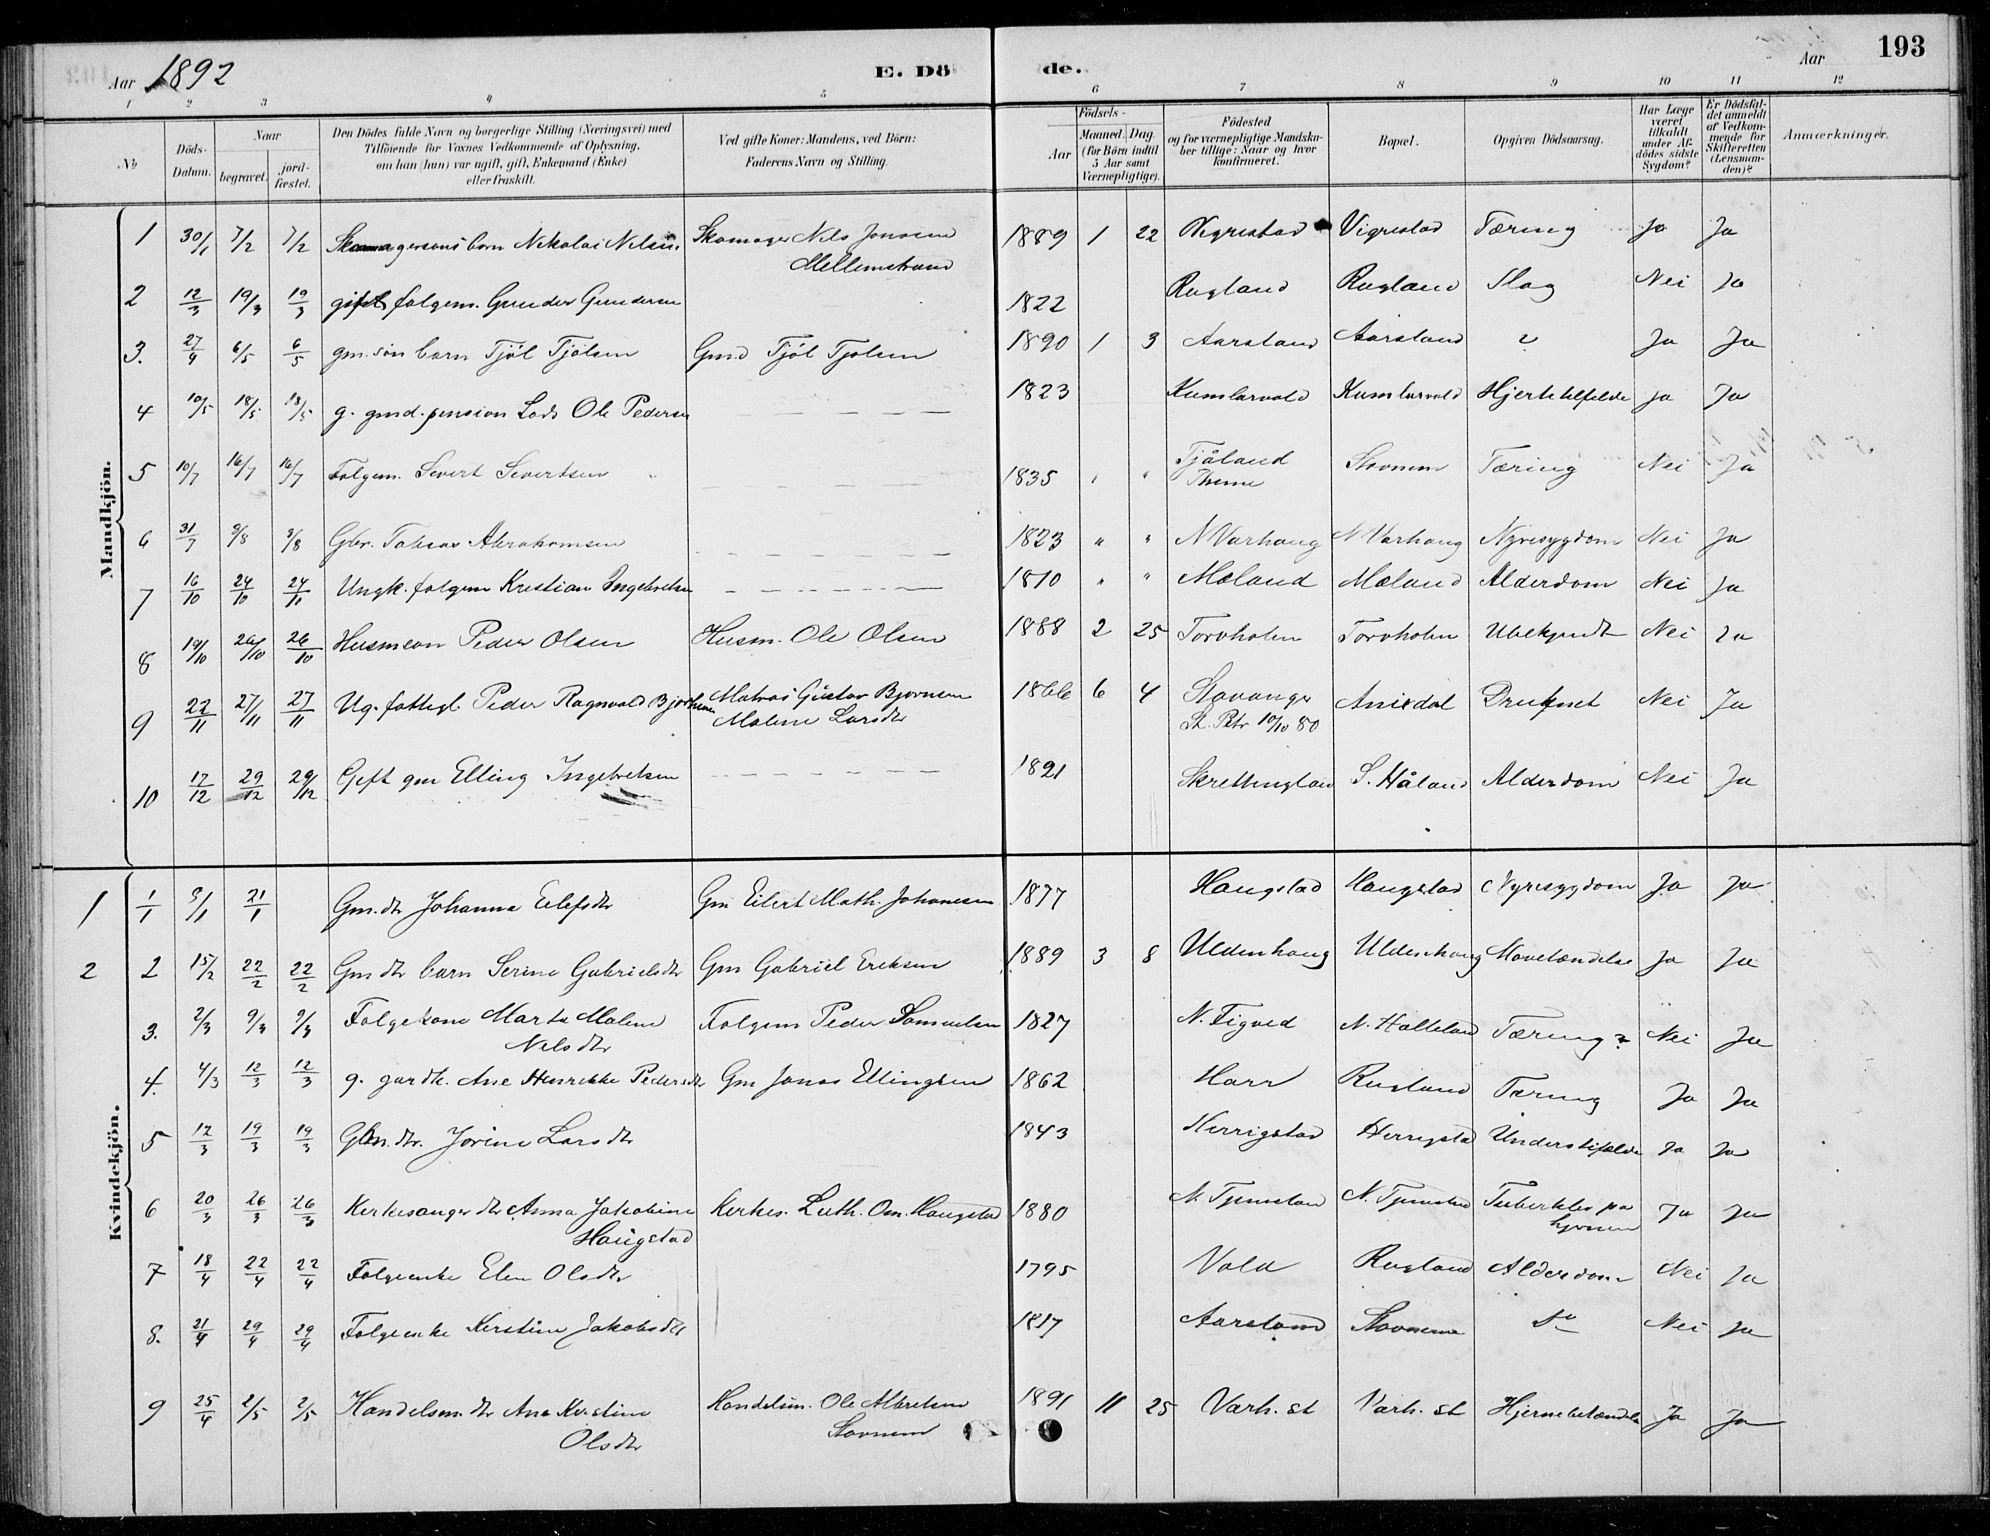 Aar 1892 E. Dö de. Aar 193
1 2 3 4 5 6 7 8 9 10 11 12
No Döds-Datum. Naar begravet. jord-fæstet. Den Dödes fulde Navn og borgerlige Stilling (Næringsvei) med Tilföiende for Voxnes Vedkommende af Oplysning. om han (hun) var ugift, gift, Enkemand (Enke) eller fraskilt. Ved gifte Koner: Mandens, ved Börn: Faderens Navn og Stilling. Födsels- Aar Maaned. Dag. (for Börn indtil 5 Aar samt Værnepligtige). Födested og for værnepligtige Mandska-ber tillige: Naar og hvor konfirmeret. Bopæl. Opgiven Dödsaarsag. Har Læge været tilkaldt under Af-dödes sidste Sygdom? Er Dödsfal-det anmeldt af Vedkom-mende for Skifteretten (Lensman-den)? Anmærkninger.
Mandkjön.
1 30/1 7/2 7/2 Skomagersöns barn Nikolai Nilsen Skomager Nils Jonsen Mellemstrand 1889 1 22 Vigrestad Vigrestad Tæring Ja Ja
2 12/3 19/3 19/3 gift folgem. Gunder Gundersen 1822 Rugland Rugland Slag Nei Ja
3. 27/4 6/5 6/5 gm. sön barn Tjöl Tjölsen Gmd Tjöl Tjölsen 1890 1 3 Aarsland Aarsland ? Ja Ja
4 10/5 18/5 18/5 g. gmd. pension Lods Ole Pedersen 1823 Kumlarvold Kumlarvold Hjertetilfelde Ja Ja
5 10/7 16/7 16/7 Folgem. Severt Severtsen 1835 " " Tjåland Thime Stavnem Tæring Nei Ja
6 31/7 9/8 9/8 Gbr. Tobias Abrahamsen 1823 " " N Varhaug N Varhaug Nyresygdom Nei Ja
7 16/10 24/10 24/10 Ungk. folgem Kristian Ingebretsen 1810 " " Mæland Mæland Alderdom Nei Ja
8 19/10 26/10 26/10 Husmsön Peder Olsen Husm. Ole Olsen 1888 2 25 Torvholen Torvholen Ubekjendt Nei Ja
9 22/11 27/11 27/11 Ug. fattigl. Peder Ragnvald Bjornsen Matros Gustav Bjornsen Malene Larsdtr 1866 6 4 Stavanger St. Petr 10/10 80 Anisdal Druknet Nei Ja
10 17/12 29/12 29/12 Gift gm Elling Ingebretsen 1821 Skrettingland S. Håland Alderdom Nei Ja
Kvindekjön.
1 1/1 9/1 21/1 Gm.dtr Johanna Eilefsdtr Gm Eilert Math. Johanesen 1877 Haugstad Haugstad Nyresygdom Ja Ja
2 2 15/2 22/2 22/2 Gmdtr barn Serine Gabrielsdtr Gm Gabriel Eriksen 1889 3 8 Uldenhaug Uldenhaug Mavebetændelse Ja Ja
3. 2/3 9/3 9/3 Folgekone Marta Malene Nelsdtr Folgem Peder Samuelsen 1827 N. Figved N. Halleland Tæring? Nei Ja
4. 4/3 12/3 12/3 g. gardk. Ane Henrikke Pedersdtr Gm Jonas Ellingsen 1862 Harr Rugland Tæring Ja Ja
5 12/3 19/3 19/3 Gbn.dtr. Jorine Larsdtr 1843 Herrigstad Herrigstad Ja Ja
6 20/3 26/3 26/3 Kirkesanger dtr Anna Jakobine Haugstad Kirkes. Luth. Om. Haugstad 1880 N. Tjemsland N. Tjemsland Tuberkler paa hjernen Ja Ja
7 18/4 22/4 22/4 Folgeenke Elen Olsdtr 1795 Vold Rugland Alderdom Nei Ja
8. 21/4 29/4 29/4 Folgeenke Kirstine Jakobsdtr 1817 Aarsland Stavnem Do Nei Ja
9 25/4 2/5 2/5 Handelsm. dtr Ane Kirstine Olsdtr Handelsm. Ole Albretsen Stavnem 1891 11 25 Varh. st Varh. st Hjernebetændelse Ja Ja